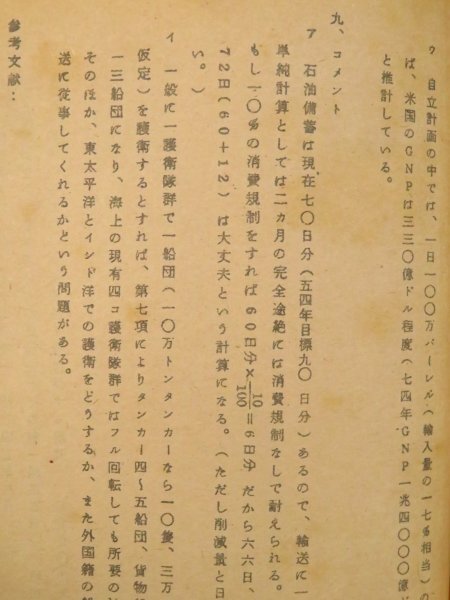 ウ 自立計画の中では、一日一〇〇万バーレル(輸入量の一七%相当)の
ば、米国のGNPは三三〇億ドル程度(七四年GNP一兆四〇〇〇億ド
と推計している。
九、コメント
ア 石油備蓄は現在七〇日分(五四年目標九〇日分)あるので、輸送に一
単純計算としては二カ月の完全途絶には消費規制なしで耐えられる。
もし一〇%の消費規制をすれば60日分×10/100=6日分だから六六日、
72日(60+12)は大丈夫という計算になる。(ただし削減量と日
い。)
イ 一般に一護衛隊群で一船団(一〇万トンタンカーなら一〇隻、三万
仮定)を護衛するとすれば、第七項によりタンカー四~五船団、貨物
一三船団になり、海上の現有四コ護衛隊群ではフル回転しても所要の
そのほか、東太平洋とインド洋での護衛をどうするか、また外国籍の
送に従事してくれるかという問題がある。
参考文献: